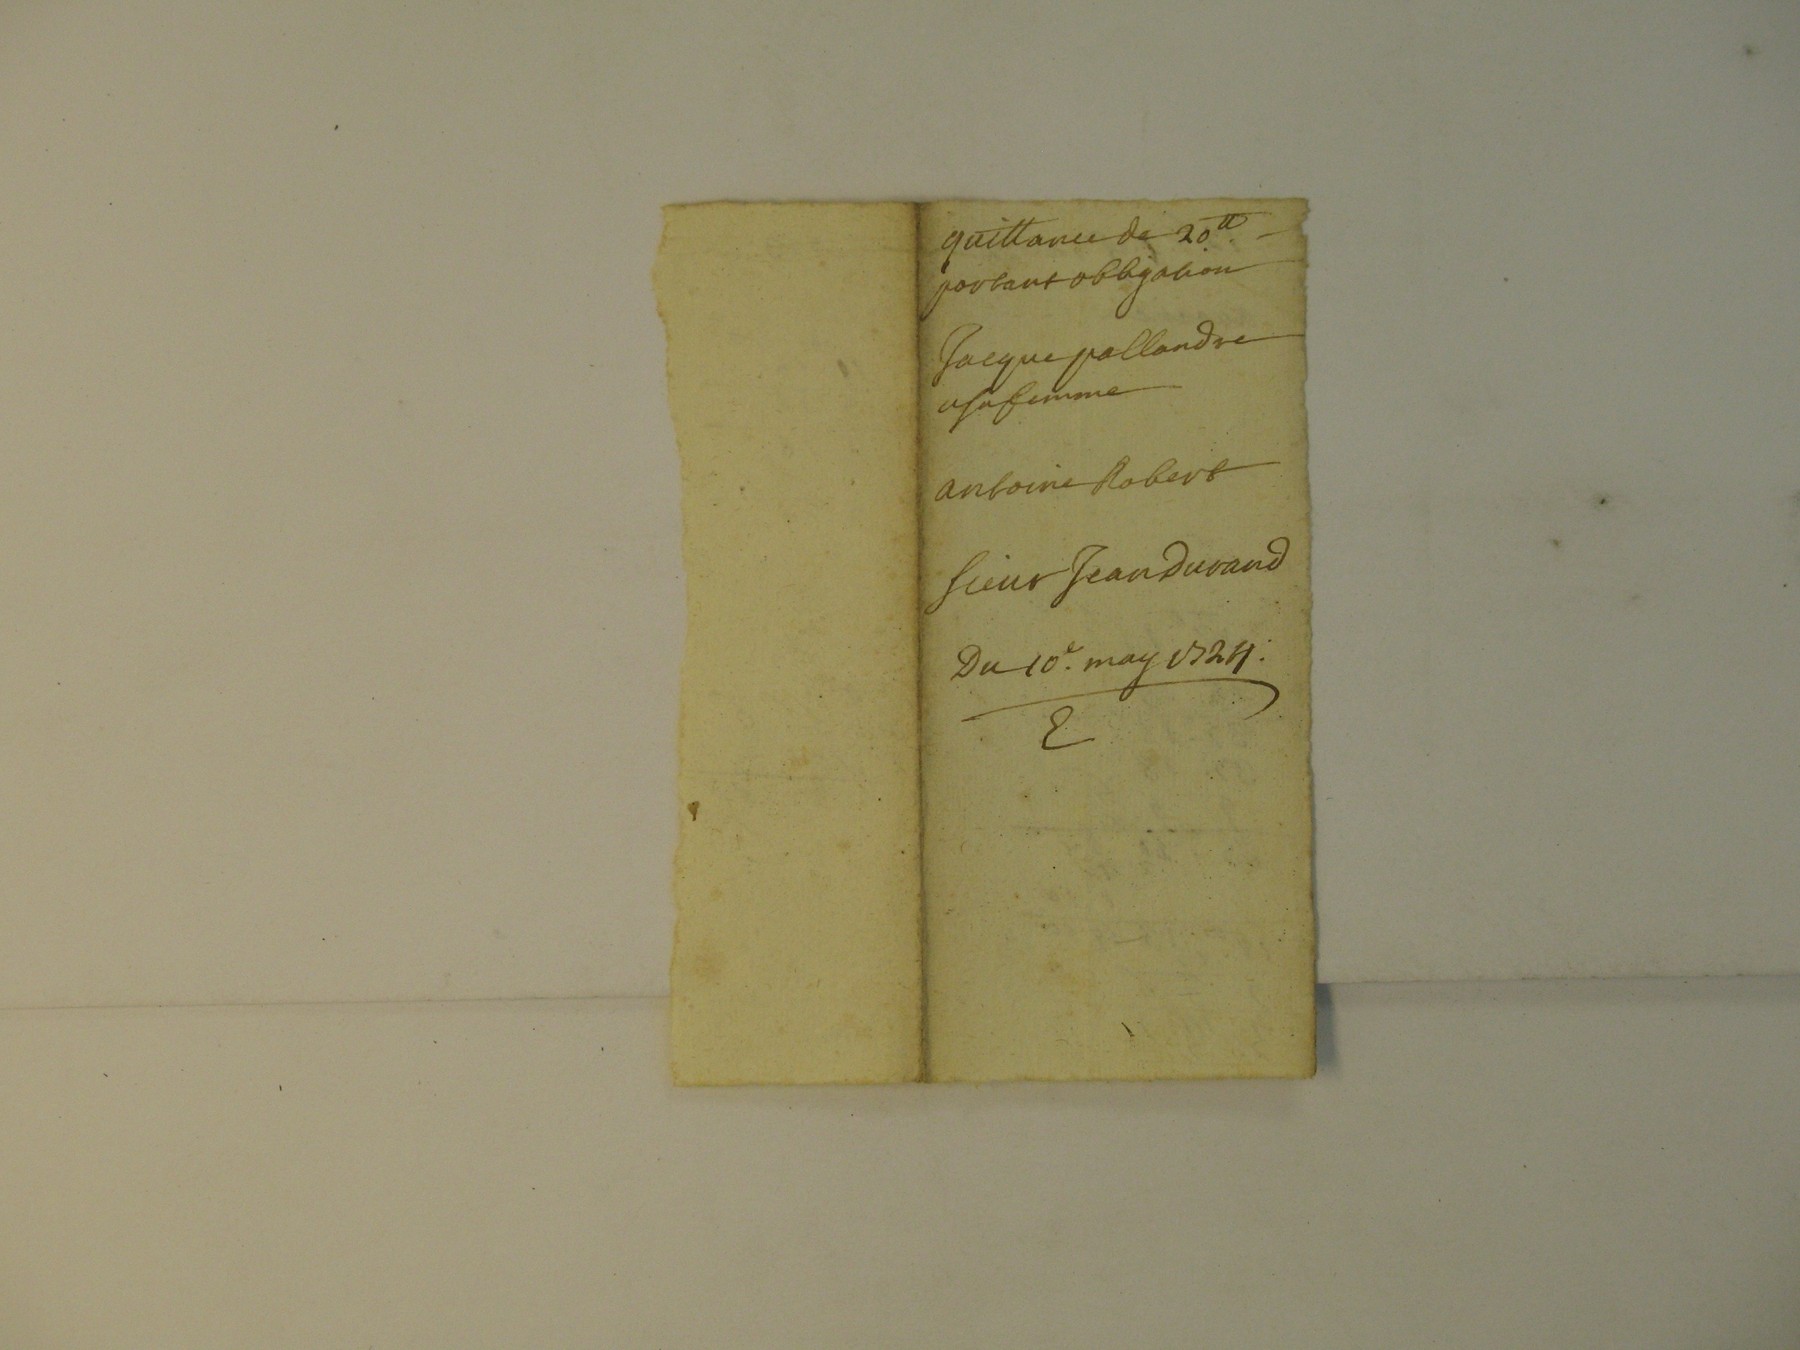 quittance de 20tt
portant obligation
Jacque pallandre
e sa femme
antoine Robert
sieur Jean Durand
Du 10e. may 1724.
E